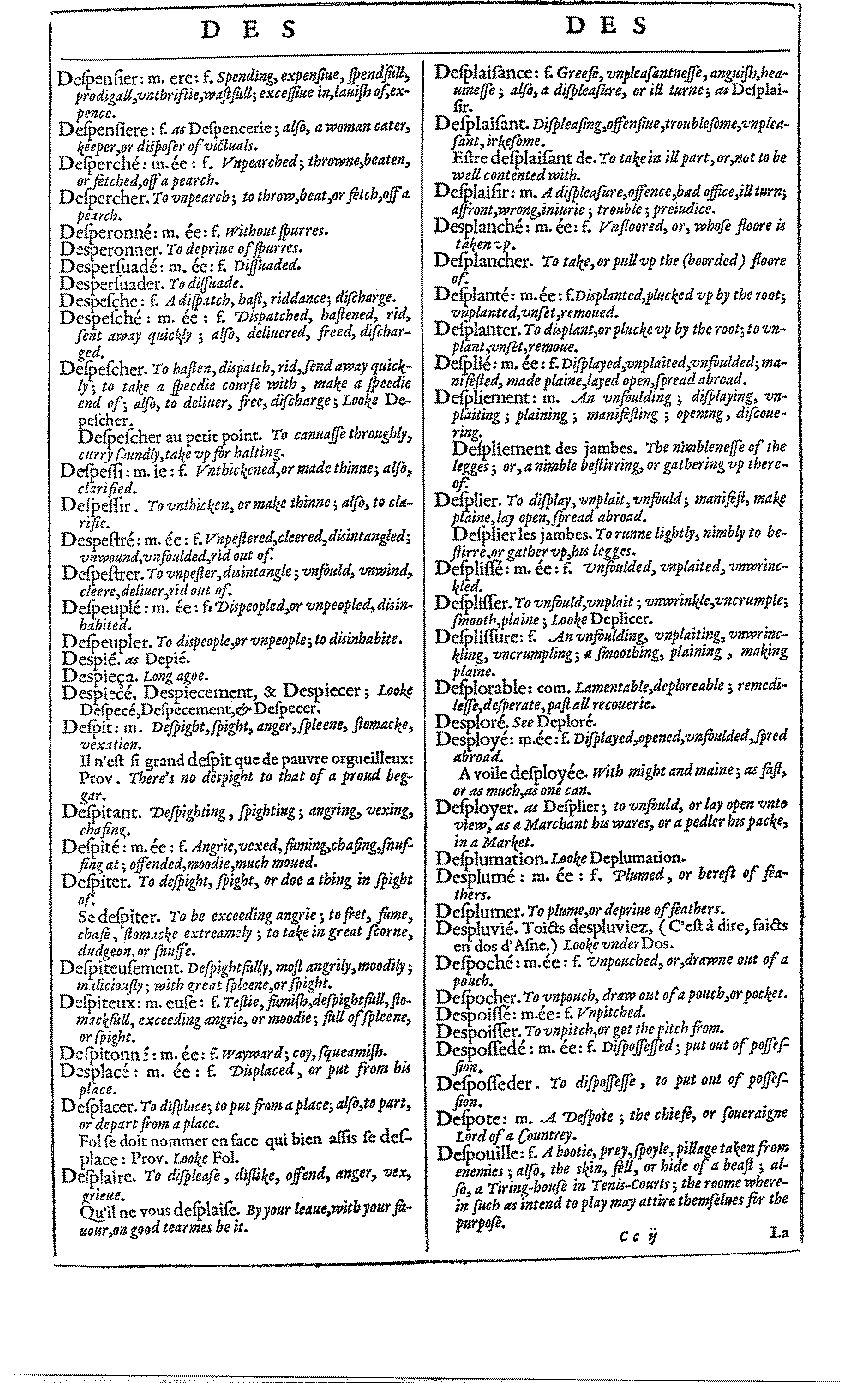 D E S
D E S
Deſpenſier: m. ere: f. Spending, expenſiue, ſpendfull,
prodigall, vnthriftie, waſtfull; exceſſiue in, lauiſh of, ex-
pence.
Deſpenſiere: f. as Deſpencerie; alſo, a woman cater,
keeper, or diſpoſer of victuals.
Deſperché: m. ée: f. Vnpearched; throwne, beaten,
or fetched, off a pearch.
Deſpercher. To vnpearch; to throw, beat, or fetch, off a
pearch.
Deſperonné: m. ée: f. Without ſpurres.
Desperonner. To depriue of ſpurres.
Desperſuadé: m. ée: f. Diſſuaded.
Desperſuader. To diſſuade.
Deſpeſche: f. A diſpatch, haſt, riddance; diſcharge.
Deſpeſché: m. ée: f. Diſpatched, haſtened, rid,
ſent away quickly; alſo, deliuered, freed, diſchar-
ged.
Deſpeſcher. To haſten, diſpatch, rid, ſend away quick-
ly; to take a ſpeedie courſe with, make a ſpeedie
end of; alſo, to deliuer, free, diſcharge; Looke De-
peſcher.
Deſpeſcher au petit point. To canuaſſe throughly,
curry ſoundly, take vp for halting.
Deſpeſſi: m. ie: f. Vnthickened, or made thinne; alſo,
clarified.
Deſpeſſir. To vnthicken, or make thinne; alſo, to cla-
rifie.
Deſpeſtré: m. ée: f. Vnpeſtered, cleered, disintangled;
vnwound, vnfoulded, rid out of.
Deſpeſtrer. To vnpeſter, disintangle; vnfould, vnwind,
cleere, deliuer, rid out of.
Deſpeuplé: m. ée: f. Diſpeopled, or vnpeopled, disin-
habited.
Deſpeupler. To diſpeople, or vnpeople; to disinhabite.
Deſpié. as Depié.
Deſpieça. Long agoe.
Deſpiecé, Deſpiecement, & Deſpiecer; Looke
Deſpecé, Deſpecement, & Deſpecer.
Deſpit: m. Deſpight, ſpight, anger, ſpleene, ſtomacke,
vexation.
Il n'eſt ſi grand deſpit que de pauvre orgueilleux:
Prov. There's no deſpight to that of a proud beg-
gar.
Deſpitant. Deſpighting, ſpighting; angring, vexing,
chafing.
Deſpité: m. ée: f. Angrie, vexed, fuming, chafing, ſnuf-
fing at; offended, moodie, much moued.
Deſpiter. To deſpight, ſpight, or doe a thing in ſpight
of.
Se deſpiter. To be exceeding angrie; to fret, fume,
chafe, ſtomacke extreamely; to take in great ſcorne,
dudgeon, or ſnuffe.
Deſpiteuſement. Deſpightfully, moſt angrily, moodily;
maliciouſly; with great ſpleene, or ſpight.
Deſpiteux: m. euſe: f. Teſtie, fumiſh, deſpightfull, ſto-
mackfull, exceeding angrie, or moodie; full of ſpleene,
or ſpight.
Deſpitonné: m. ée: f. Wayward; coy, ſqueamiſh.
Deſplacé: m. ée: f. Diſplaced, or put from his
place.
Deſplacer. To diſplace; to put from a place; alſo, to part,
or depart from a place.
Fol ſe doit nommer en face qui bien aſſis ſe deſ-
place: Prov. Looke Fol.
Deſplaire. To diſpleaſe, diſlike, offend, anger, vex,
grieue.
Qu'il ne vous deſplaiſe. By your leaue, with your fa-
uour, on good tearmes be it.
Deſplaiſance: f. Greefe, vnpleaſantneſſe, anguiſh, hea-
uineſſe; alſo, a diſpleaſure, or ill turne; as Deſplai-
ſir.
Deſplaiſant. Diſpleaſing, offenſiue, troubleſome, vnplea-
ſant, irkeſome.
Eſtre deſplaiſant de. To take in ill part, or, not to be
well contented with.
Deſplaiſir: m. A diſpleaſure, offence, bad office, ill turn;
affront, wrong, iniurie; trouble; preiudice.
Deſplanché: m. ée: f. Vnfloored, or, whoſe floore is
taken vp.
Deſplancher. To take, or pull vp the (boorded) floore
of.
Deſplanté: m. ée: f. Diſplanted, plucked vp by the root;
vnplanted, vnſet, remoued.
Deſplanter. To diſplant, or plucke vp by the root; to vn-
plant, vnſet, remoue.
Deſplié: m. ée: f. Diſplayed, vnplaited, vnfoulded; ma-
nifeſted, made plaine, layed open, ſpread abroad.
Deſpliement: m. An vnfoulding; diſplaying, vn-
plaiting; plaining; manifeſting; opening, diſcoue-
ring.
Deſpliement des jambes. The nimbleneſſe of the
legges; or, a nimble beſtirring, or gathering vp there-
of.
Deſplier. To diſplay, vnplait, vnfould; manifeſt, make
plaine, lay open, ſpread abroad.
Deſplier les jambes. To runne lightly, nimbly to be-
ſtirre, or gather vp, his legges.
Deſpliſſé: m. ée: f. Vnfoulded, vnplaited, vnwrinc-
kled.
Deſpliſſer. To vnfould, vnplait; vnwrinkle, vncrumple;
ſmooth, plaine; Looke Deplicer.
Deſpliſſure: f. An vnfoulding, vnplaiting, vnwrinc-
kling, vncrumpling; a ſmoothing, plaining, making
plaine.
Deſplorable: com. Lamentable, deploreable; remedi-
leſſe, deſperate, paſt all recouerie.
Desploré. See Deploré.
Deſployé: m. ée: f. Diſplayed, opened, vnfoulded, ſpred
abroad.
A voile deſployée. With might and maine; as faſt,
or as much, as one can.
Deſployer. as Deſplier; to vnfould, or lay open vnto
view, as a Marchant his wares, or a pedler his packe,
in a Market.
Deſplumation. Looke Deplumation.
Desplumé: m. ée: f. Plumed, or bereft of fea-
thers.
Deſplumer. To plume, or depriue of feathers.
Despluvié. Toicts despluviez, (C'eſt à dire, faicts
en dos d'Aſne,) Looke vnder Dos.
Deſpoché: m. ée: f. Vnpouched, or, drawne out of a
pouch.
Deſpocher. To vnpouch, draw out of a pouch, or pocket.
Despoiſſé: m. ée: f. Vnpitched.
Despoiſſer. To vnpitch, or get the pitch from.
Despoſſedé: m. ée: f. Diſpoſſeſſed; put out of poſſeſ-
ſion.
Deſpoſſeder. To diſpoſſeſſe, to put out of poſſeſ-
ſion.
Deſpote: m. A Deſpote; the chiefe, or ſoueraigne
Lord of a Countrey.
Deſpouille: f. A bootie, prey, ſpoyle, pillage taken from
enemies; alſo, the skin, fell, or hide of a beaſt; al-
ſo, a Tiring-houſe in Tenis-Courts; the roome where-
in ſuch as intend to play may attire themſelues for the
purpoſe.
C c ij
La